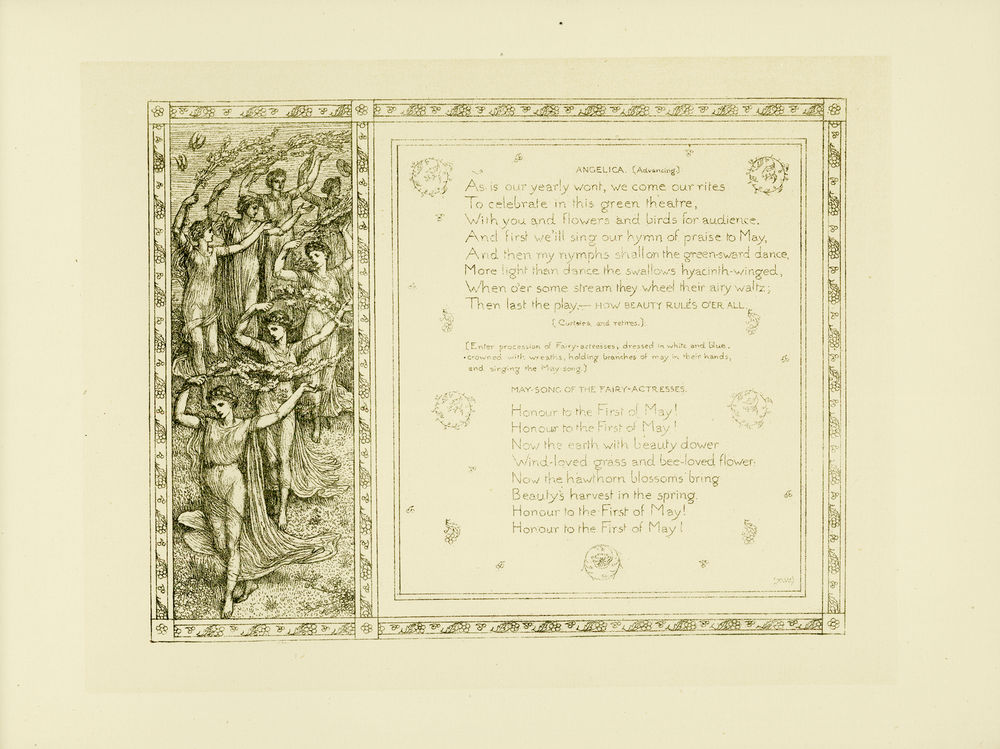 ANGELICA. (Advancing.)
As is our yearly wont, we come our rites
To celebrate in this green theatre,
With you and flowers and birds for audience.
And first we'ill sing our hymn of praise to May,
And then my nymphs shall on the green-sward dance,
More light than dance the swallows hyacinth-winged,
When o'er some stream they wheel their airy waltz;
Then last the play.— HOW BEAUTY RULES O'ER ALL.
(Curtsies and retires.)
(Enter procession of Fairy-actresses, dressed in white and blue,
crowned with wreaths, holding branches of may in their hands,
and singing the May-song.)
MAY-SONG OF THE FAIRY-ACTRESSES.
Honour to the First of May!
Honour to the First of May!
Now the earth with beauty dower
Wind-loved grass and bee-loved flower:
Now the hawthorn blossoms bring
Beauty's harvest in the spring.
Honour to the First of May!
Honour to the First of May!